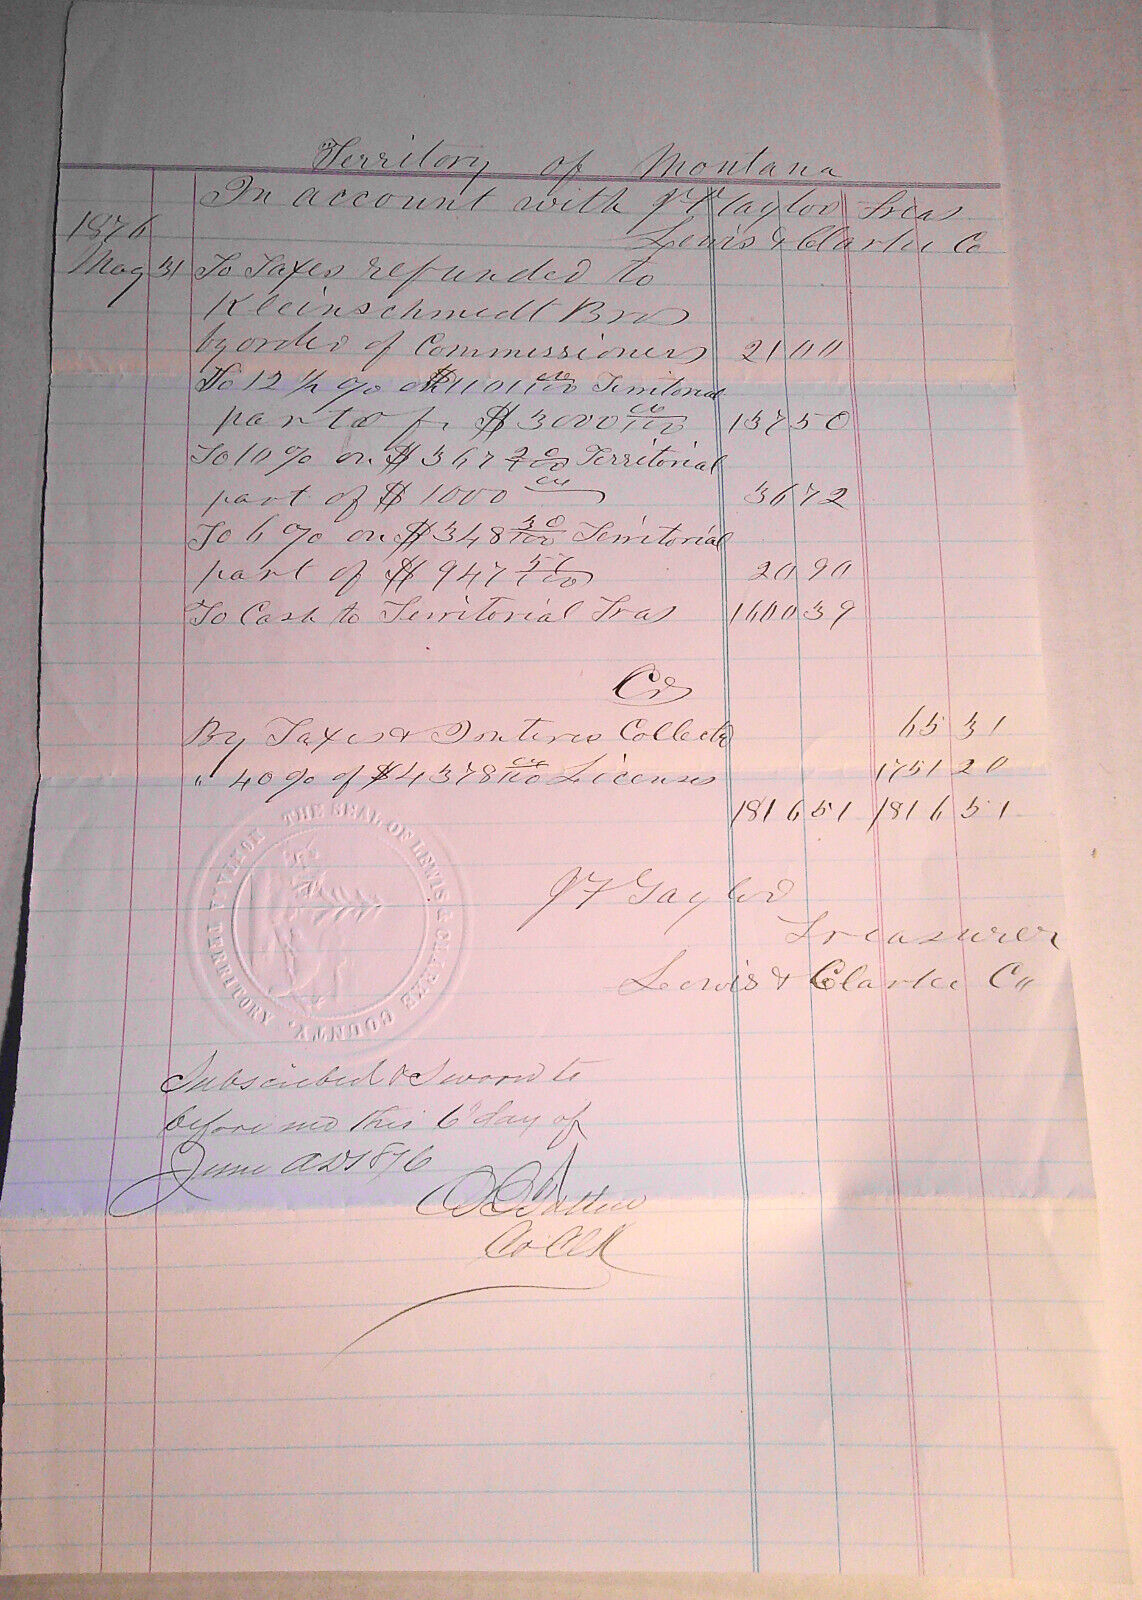 Territory of Montana
In account with J F Taylor Treas
Lewis & Clarke Co
1876
May 31 To Taxes refunded to
Kleinschmidt Bros
by order of Commissioners 21 00
To 12 1/2 % on $1101 00/100 Territorial
part of $3000 00/100 137 50
To 10 % on $367 20/100 Territorial
part of $1000 00 36 72
To 6 % on $348 30/100 Territorial
part of $947 56/100 20 90
To Cash to Territorial Tras 1600 39
Cr
By Taxes & Interes Collectd 65 31
" 40 % of $4378 00/100 Licenses 1751 20
1816 51 1816 51
THE SEAL OF LEWIS & CLARKE COUNTY, MONTANA TERRITORY
J F Taylor
Treasurer
Lewis & Clarke Co
Subscribed & Sworn to
before me this 6" day of
June AD 1876
Co Clk